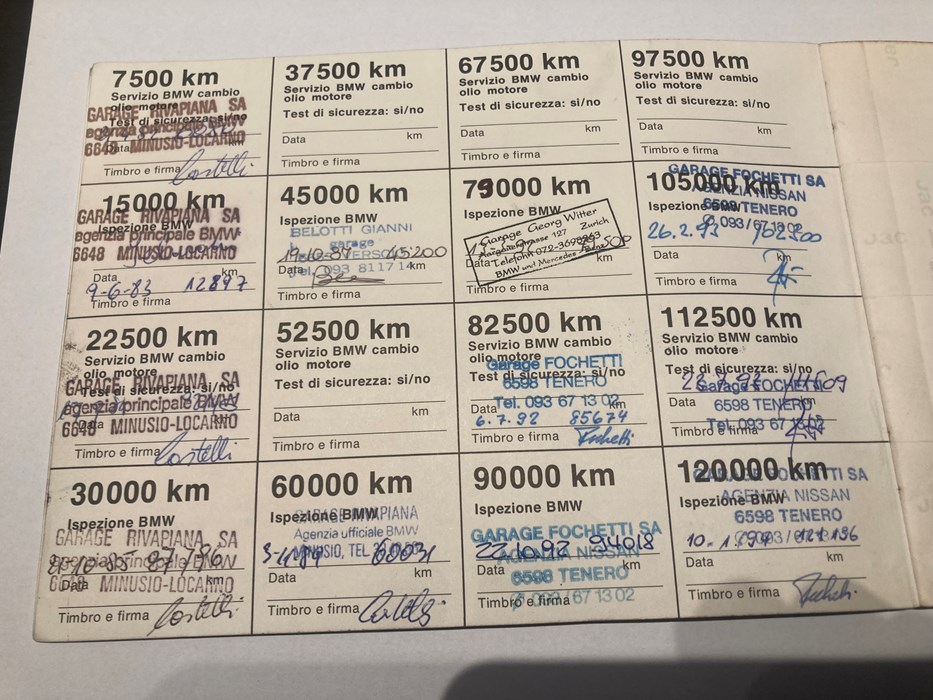 7500 km
Servizio BMW cambio
olio motore
Test di sicurezza: si/no
GARAGE RIVAPIANA SA
agenzia principale BMW
6648 MINUSIO-LOCARNO
Data km
Timbro e firma
37500 km
Servizio BMW cambio
olio motore
Test di sicurezza: si/no
Data km
Timbro e firma
67500 km
Servizio BMW cambio
olio motore
Test di sicurezza: si/no
Data km
Timbro e firma
97500 km
Servizio BMW cambio
olio motore
Test di sicurezza: si/no
Data km
Timbro e firma
15000 km
Ispezione BMW
GARAGE RIVAPIANA SA
agenzia principale BMW
6648 MINUSIO-LOCARNO
Data km
9-6-83 12897
Timbro e firma
45000 km
Ispezione BMW
BELOTTI GIANNI
garage
19.10.87 45200
Data km
Tel. 093 8117 14
Timbro e firma
km
Ispezione BMW
Garage Georg Witter
127 Zurich
Data
Telefon
BMW und Mercedes
Timbro e firma
105000 km
Ispezione BMW
GARAGE FOCHETTI SA
AGENZIA NISSAN
6598 TENERO
093/67 13 02
26.2.93 102500
Data km
Timbro e firma
22500 km
Servizio BMW cambio
olio motore
Test di sicurezza: si/no
GARAGE RIVAPIANA SA
agenzia principale BMW
6648 MINUSIO-LOCARNO
Data km
Timbro e firma
52500 km
Servizio BMW cambio
olio motore
Test di sicurezza: si/no
Data km
Timbro e firma
82500 km
Servizio BMW cambio
olio motore
Test di sicurezza: si/no
Garage FOCHETTI
6598 TENERO
Tel. 093 67 13 02
Data km
6.7.92 85674
Timbro e firma
112500 km
Servizio BMW cambio
olio motore
Test di sicurezza: si/no
Garage FOCHETTI
6598 TENERO
Tel. 093 67 13 02
Data km
Timbro e firma
30000 km
Ispezione BMW
GARAGE RIVAPIANA SA
agenzia principale BMW
6648 MINUSIO-LOCARNO
Data km
Timbro e firma
60000 km
Ispezione BMW
GARAGE RIVAPIANA
Agenzia ufficiale BMW
MINUSIO, TEL.
60031
Data km
Timbro e firma
90000 km
Ispezione BMW
GARAGE FOCHETTI SA
AGENZIA NISSAN
22.10.92 94018
Data km
6598 TENERO
093/67 13 02
Timbro e firma
120000 km
Ispezione BMW
GARAGE FOCHETTI SA
AGENZIA NISSAN
6598 TENERO
10.1.1994 121136
Data km
Timbro e firma